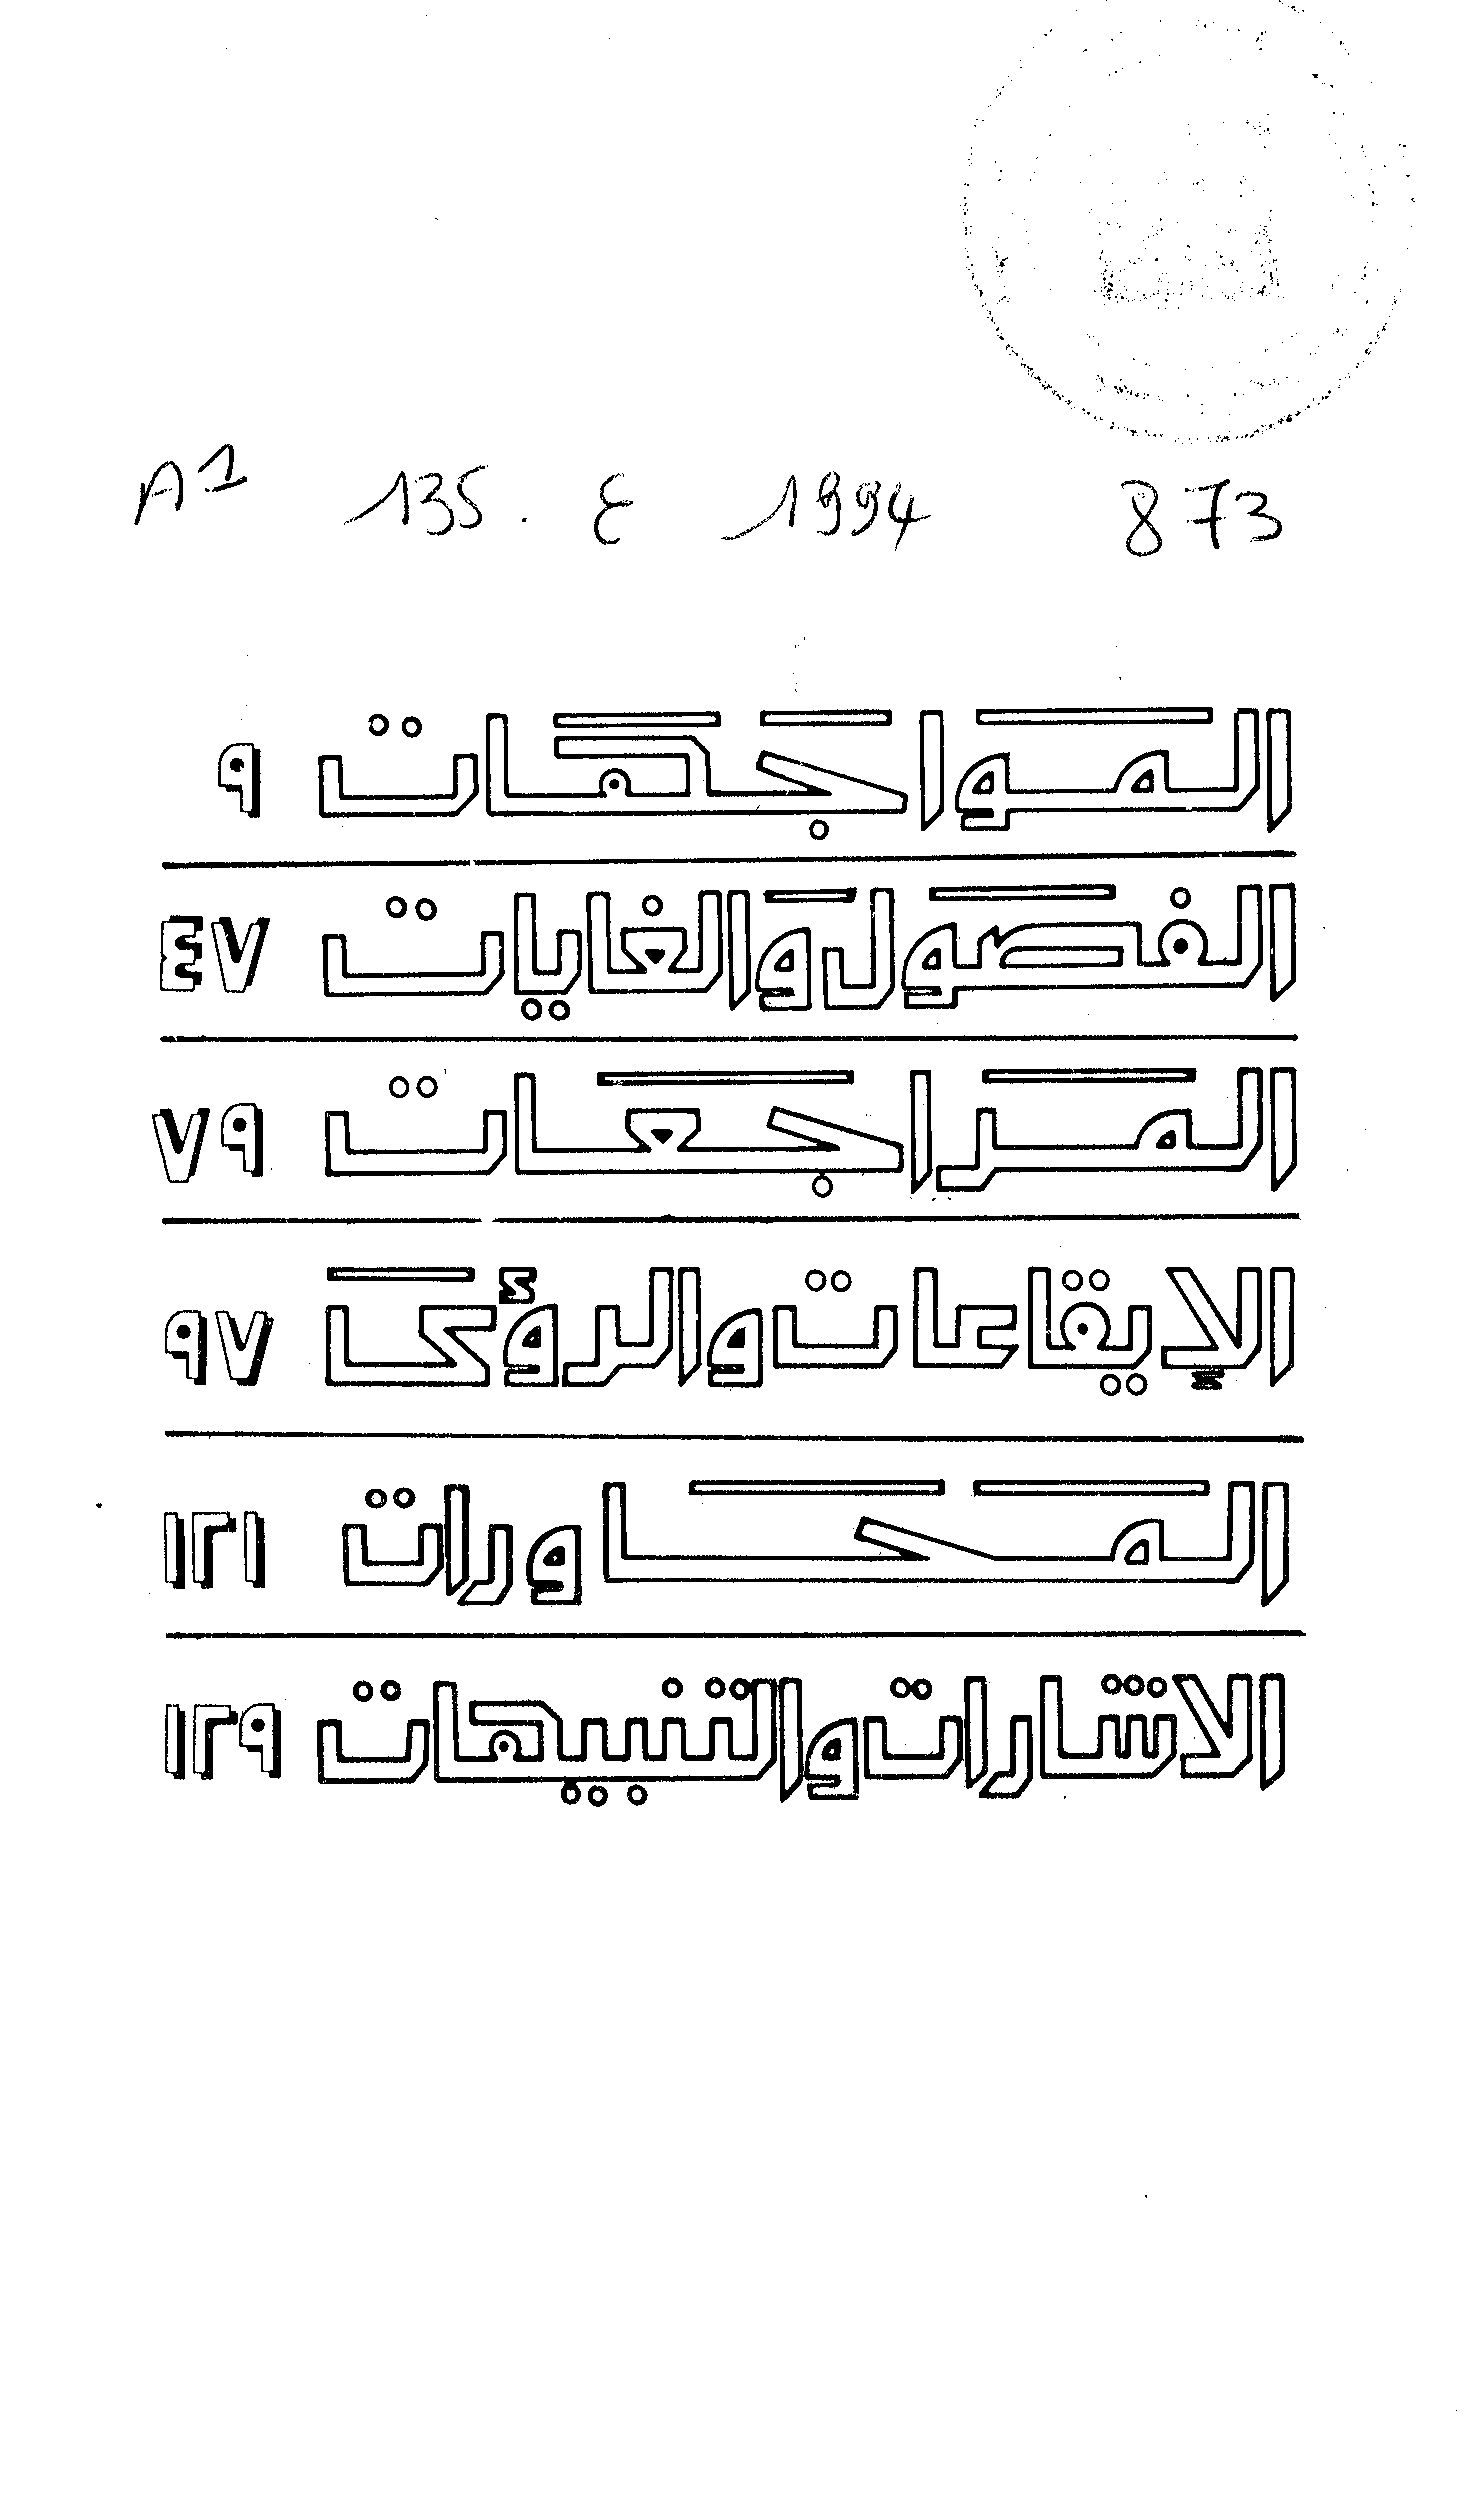 A1 135. ع 1994 873
المواجهات ٩
الفصول والغايات ٤٧
المراجعات ٧٩
الإيقاعات والرؤى ٩٧
المحاورات ١٢١
الاشارات والتنبيهات ١٢٩